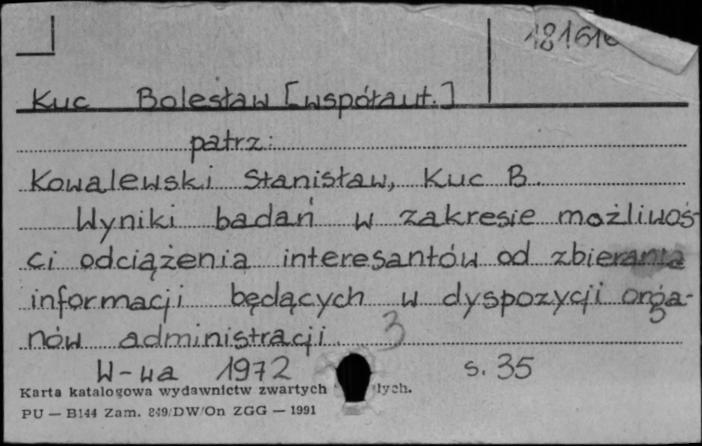 Kuc Bolesław [współaut.]
patrz:
Kowalewski Stanisław, Kuc B.
Wyniki badań w zakresie możliwoś-
ci odciążenia interesantów od zbierania
informacji będących w dyspozycji orga-
nów administracji. 3
W-wa 1972 s. 35
Karta katalogowa wydawnictw zwartych
PU — B144 Zam. 849/DW/On ZGG — 1991